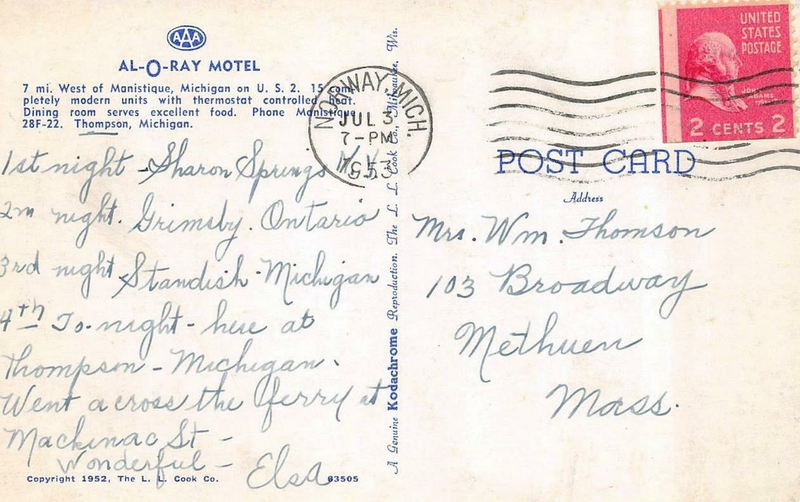 AAA
AL-O-RAY MOTEL
7 mi. West of Manistique, Michigan on U. S. 2. 15 com-
pletely modern units with thermostat controlled heat.
Dining room serves excellent food. Phone Manistique
28F-22. Thompson, Michigan.
1st night - Sharon Springs N.Y.
2nd night. Grimsby. Ontario
3rd night Standish - Michigan
4th To-night - here at
Thompson - Michigan.
Went across the ferry at
Mackinac St -
Wonderful - Elsa
Copyright 1952, The L. L. Cook Co. 63505
A Genuine Kodachrome Reproduction. The L. L. Cook Co., Milwaukee, Wis.
NORWAY, MICH.
JUL 3
7-PM
1953
UNITED
STATES
POSTAGE
JOHN
ADAMS
2 CENTS 2
POST CARD
Address
Mrs. Wm. Thomson
103 Broadway
Methuen
Mass.